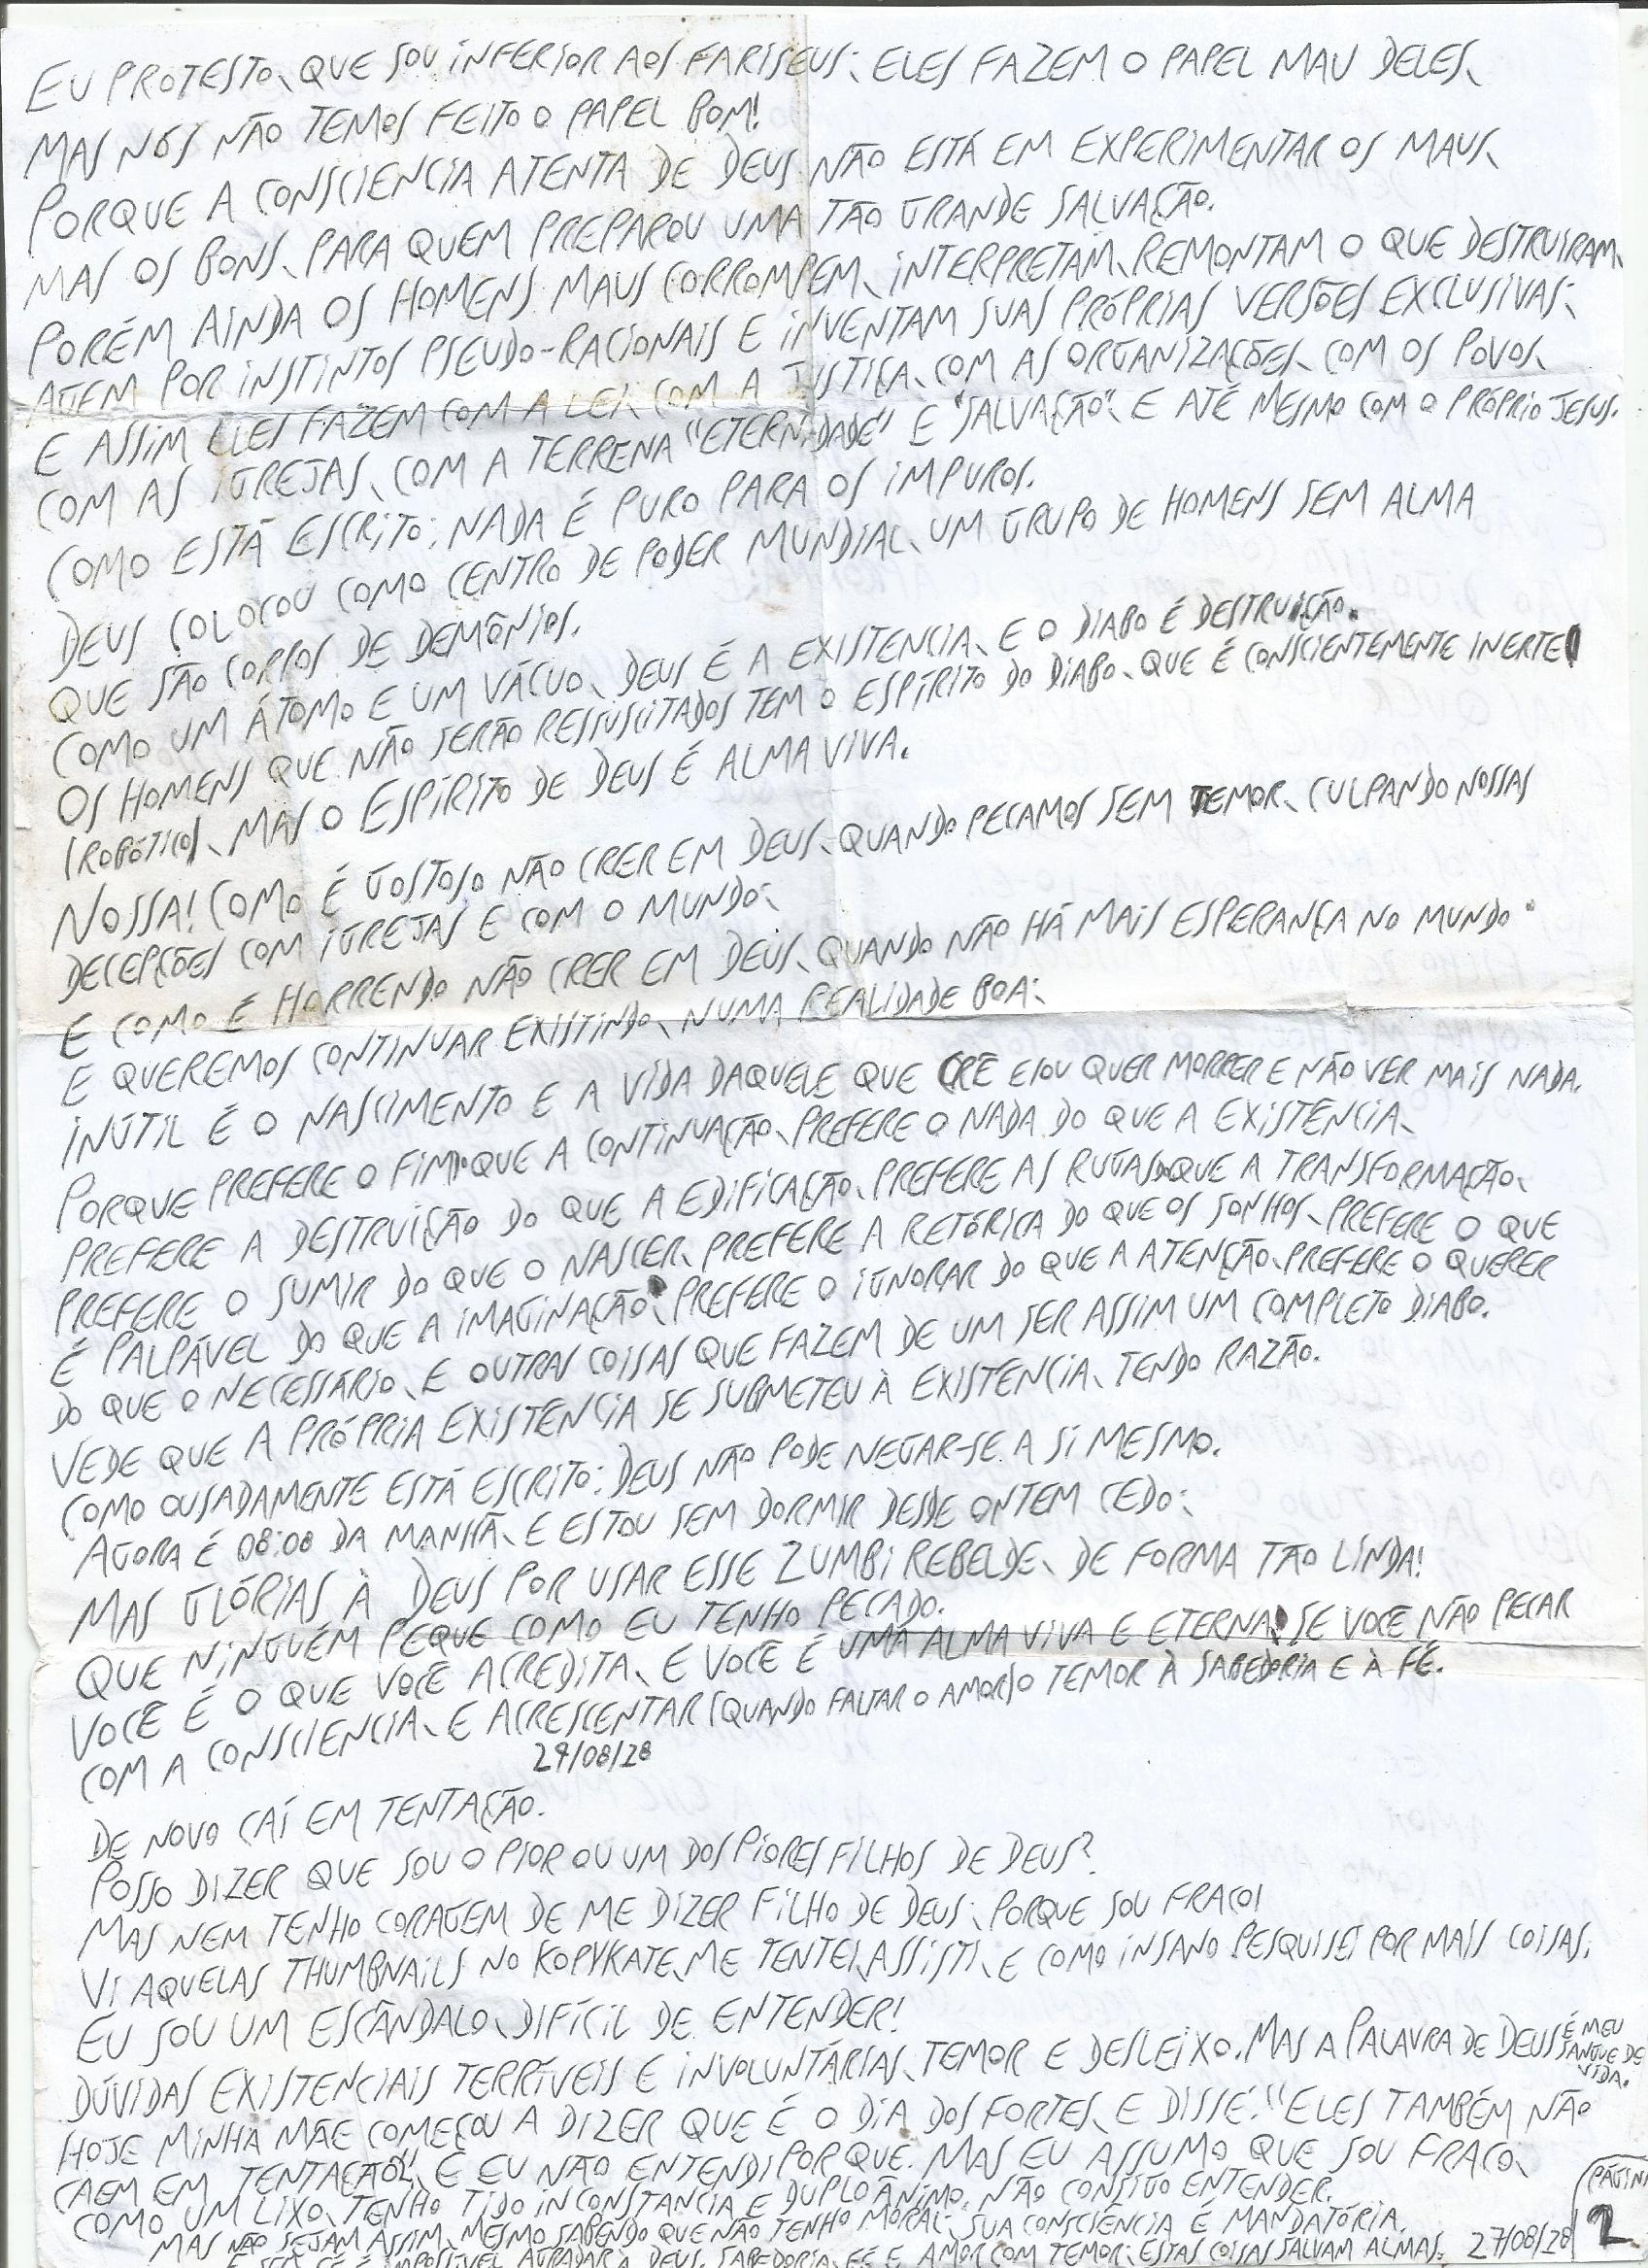 EU PROTESTO, QUE SOU INFERIOR AOS FARISEUS: ELES FAZEM O PAPEL MAU DELES,
MAS NÓS NÃO TEMOS FEITO O PAPEL BOM!
PORQUE A CONSCIENCIA ATENTA DE DEUS NÃO ESTÁ EM EXPERIMENTAR OS MAUS,
MAS OS BONS, PARA QUEM PREPAROU UMA TÃO GRANDE SALVAÇÃO.
PORÉM AINDA OS HOMENS MAUS CORROMPEM, INTERPRETAM, REMONTAM O QUE DESTRUIRAM,
AGEM POR INSTINTOS PSEUDO-RACIONAIS E INVENTAM SUAS PRÓPRIAS VERSÕES EXCLUSIVAS;
E ASSIM ELES FAZEM COM A LEI, COM A JUSTIÇA, COM AS ORGANIZAÇÕES, COM OS POVOS,
COM AS IGREJAS, COM A TERRENA "ETERNIDADE" E "SALVAÇÃO", E ATÉ MESMO COM O PRÓPRIO JESUS.
COMO ESTÁ ESCRITO: NADA É PURO PARA OS IMPUROS.
DEUS COLOCOU COMO CENTRO DE PODER MUNDIAL, UM GRUPO DE HOMENS SEM ALMA
QUE SÃO CORPOS DE DEMÔNIOS.
COMO UM ÁTOMO E UM VÁCUO, DEUS É A EXISTENCIA, E O DIABO É DESTRUIÇÃO.
OS HOMENS QUE NÃO SERÃO RESSUSCITADOS TEM O ESPÍRITO DO DIABO, QUE É CONSCIENTEMENTE INERTE
(ROBÓTICO), MAS O ESPÍRITO DE DEUS É ALMA VIVA.
NOSSA! COMO É GOSTOSO NÃO CRER EM DEUS, QUANDO PECAMOS SEM TEMOR, CULPANDO NOSSAS
DECEPÇÕES COM IGREJAS E COM O MUNDO;
E COMO É HORRENDO NÃO CRER EM DEUS, QUANDO NÃO HÁ MAIS ESPERANÇA NO MUNDO
E QUEREMOS CONTINUAR EXISTINDO, NUMA REALIDADE BOA;
INÚTIL É O NASCIMENTO E A VIDA DAQUELE QUE CRÊ E/OU QUER MORRER E NÃO VER MAIS NADA.
PORQUE PREFERE O FIM DO QUE A CONTINUAÇÃO, PREFERE O NADA DO QUE A EXISTÊNCIA,
PREFERE A DESTRUIÇÃO DO QUE A EDIFICAÇÃO, PREFERE AS RUGAS DO QUE A TRANSFORMAÇÃO,
PREFERE O SUMIR DO QUE O NASCER, PREFERE A RETÓRICA DO QUE OS SONHOS, PREFERE O QUE
É PALPÁVEL DO QUE A IMAGINAÇÃO, PREFERE O IGNORAR DO QUE A ATENÇÃO, PREFERE O QUERER
DO QUE O NECESSÁRIO, E OUTRAS COISAS QUE FAZEM DE UM SER ASSIM UM COMPLETO DIABO.
VEDE QUE A PRÓPRIA EXISTENCIA SE SUBMETEU À EXISTENCIA, TENDO RAZÃO.
COMO OUSADAMENTE ESTÁ ESCRITO: DEUS NÃO PODE NEGAR-SE A SI MESMO.
AGORA É 08:08 DA MANHÃ, E ESTOU SEM DORMIR DESDE ONTEM CEDO;
MAS GLÓRIAS À DEUS POR USAR ESSE ZUMBI REBELDE, DE FORMA TÃO LINDA!
QUE NINGUÉM PEQUE COMO EU TENHO PECADO.
VOCÊ É O QUE VOCÊ ACREDITA, E VOCÊ É UMA ALMA VIVA E ETERNA, SE VOCÊ NÃO PECAR
COM A CONSCIENCIA, E ACRESCENTAR (QUANDO FALTAR O AMOR) O TEMOR À SABEDORIA E À FÉ.
29/08/28
DE NOVO CAÍ EM TENTAÇÃO.
POSSO DIZER QUE SOU O PIOR OU UM DOS PIORES FILHOS DE DEUS?
MAS NEM TENHO CORAGEM DE ME DIZER FILHO DE DEUS; PORQUE SOU FRACO!
VI AQUELAS THUMBNAILS NO KOPYKATE, ME TENTEI, ASSISTI, E COMO INSANO PESQUISEI POR MAIS COISAS.
EU SOU UM ESCÂNDALO, DIFÍCIL DE ENTENDER!
DÚVIDAS EXISTENCIAIS TERRÍVEIS E INVOLUNTÁRIAS, TEMOR E DESLEIXO. MAS A PALAVRA DE DEUS É MEU SANGUE DE VIDA.
HOJE MINHA MÃE COMEÇOU A DIZER QUE É O DIA DOS FORTES, E DISSE: "ELES TAMBÉM NÃO
CAEM EM TENTAÇÃO", E EU NÃO ENTENDI PORQUE. MAS EU ASSUMO QUE SOU FRACO,
COMO UM LIXO, TENHO TIDO INCONSTANCIA E DUPLO ÂNIMO. NÃO CONSIGO ENTENDER.
MAS NÃO SEJAM ASSIM, MESMO SABENDO QUE NÃO TENHO MORAL; SUA CONSCIÊNCIA É MANDATÓRIA.
E SEM FÉ É IMPOSSÍVEL AGRADAR A DEUS. SABEDORIA, FÉ E AMOR COM TEMOR: ESTAS COISAS SALVAM ALMAS. 27/08/28
PÁGINA
2